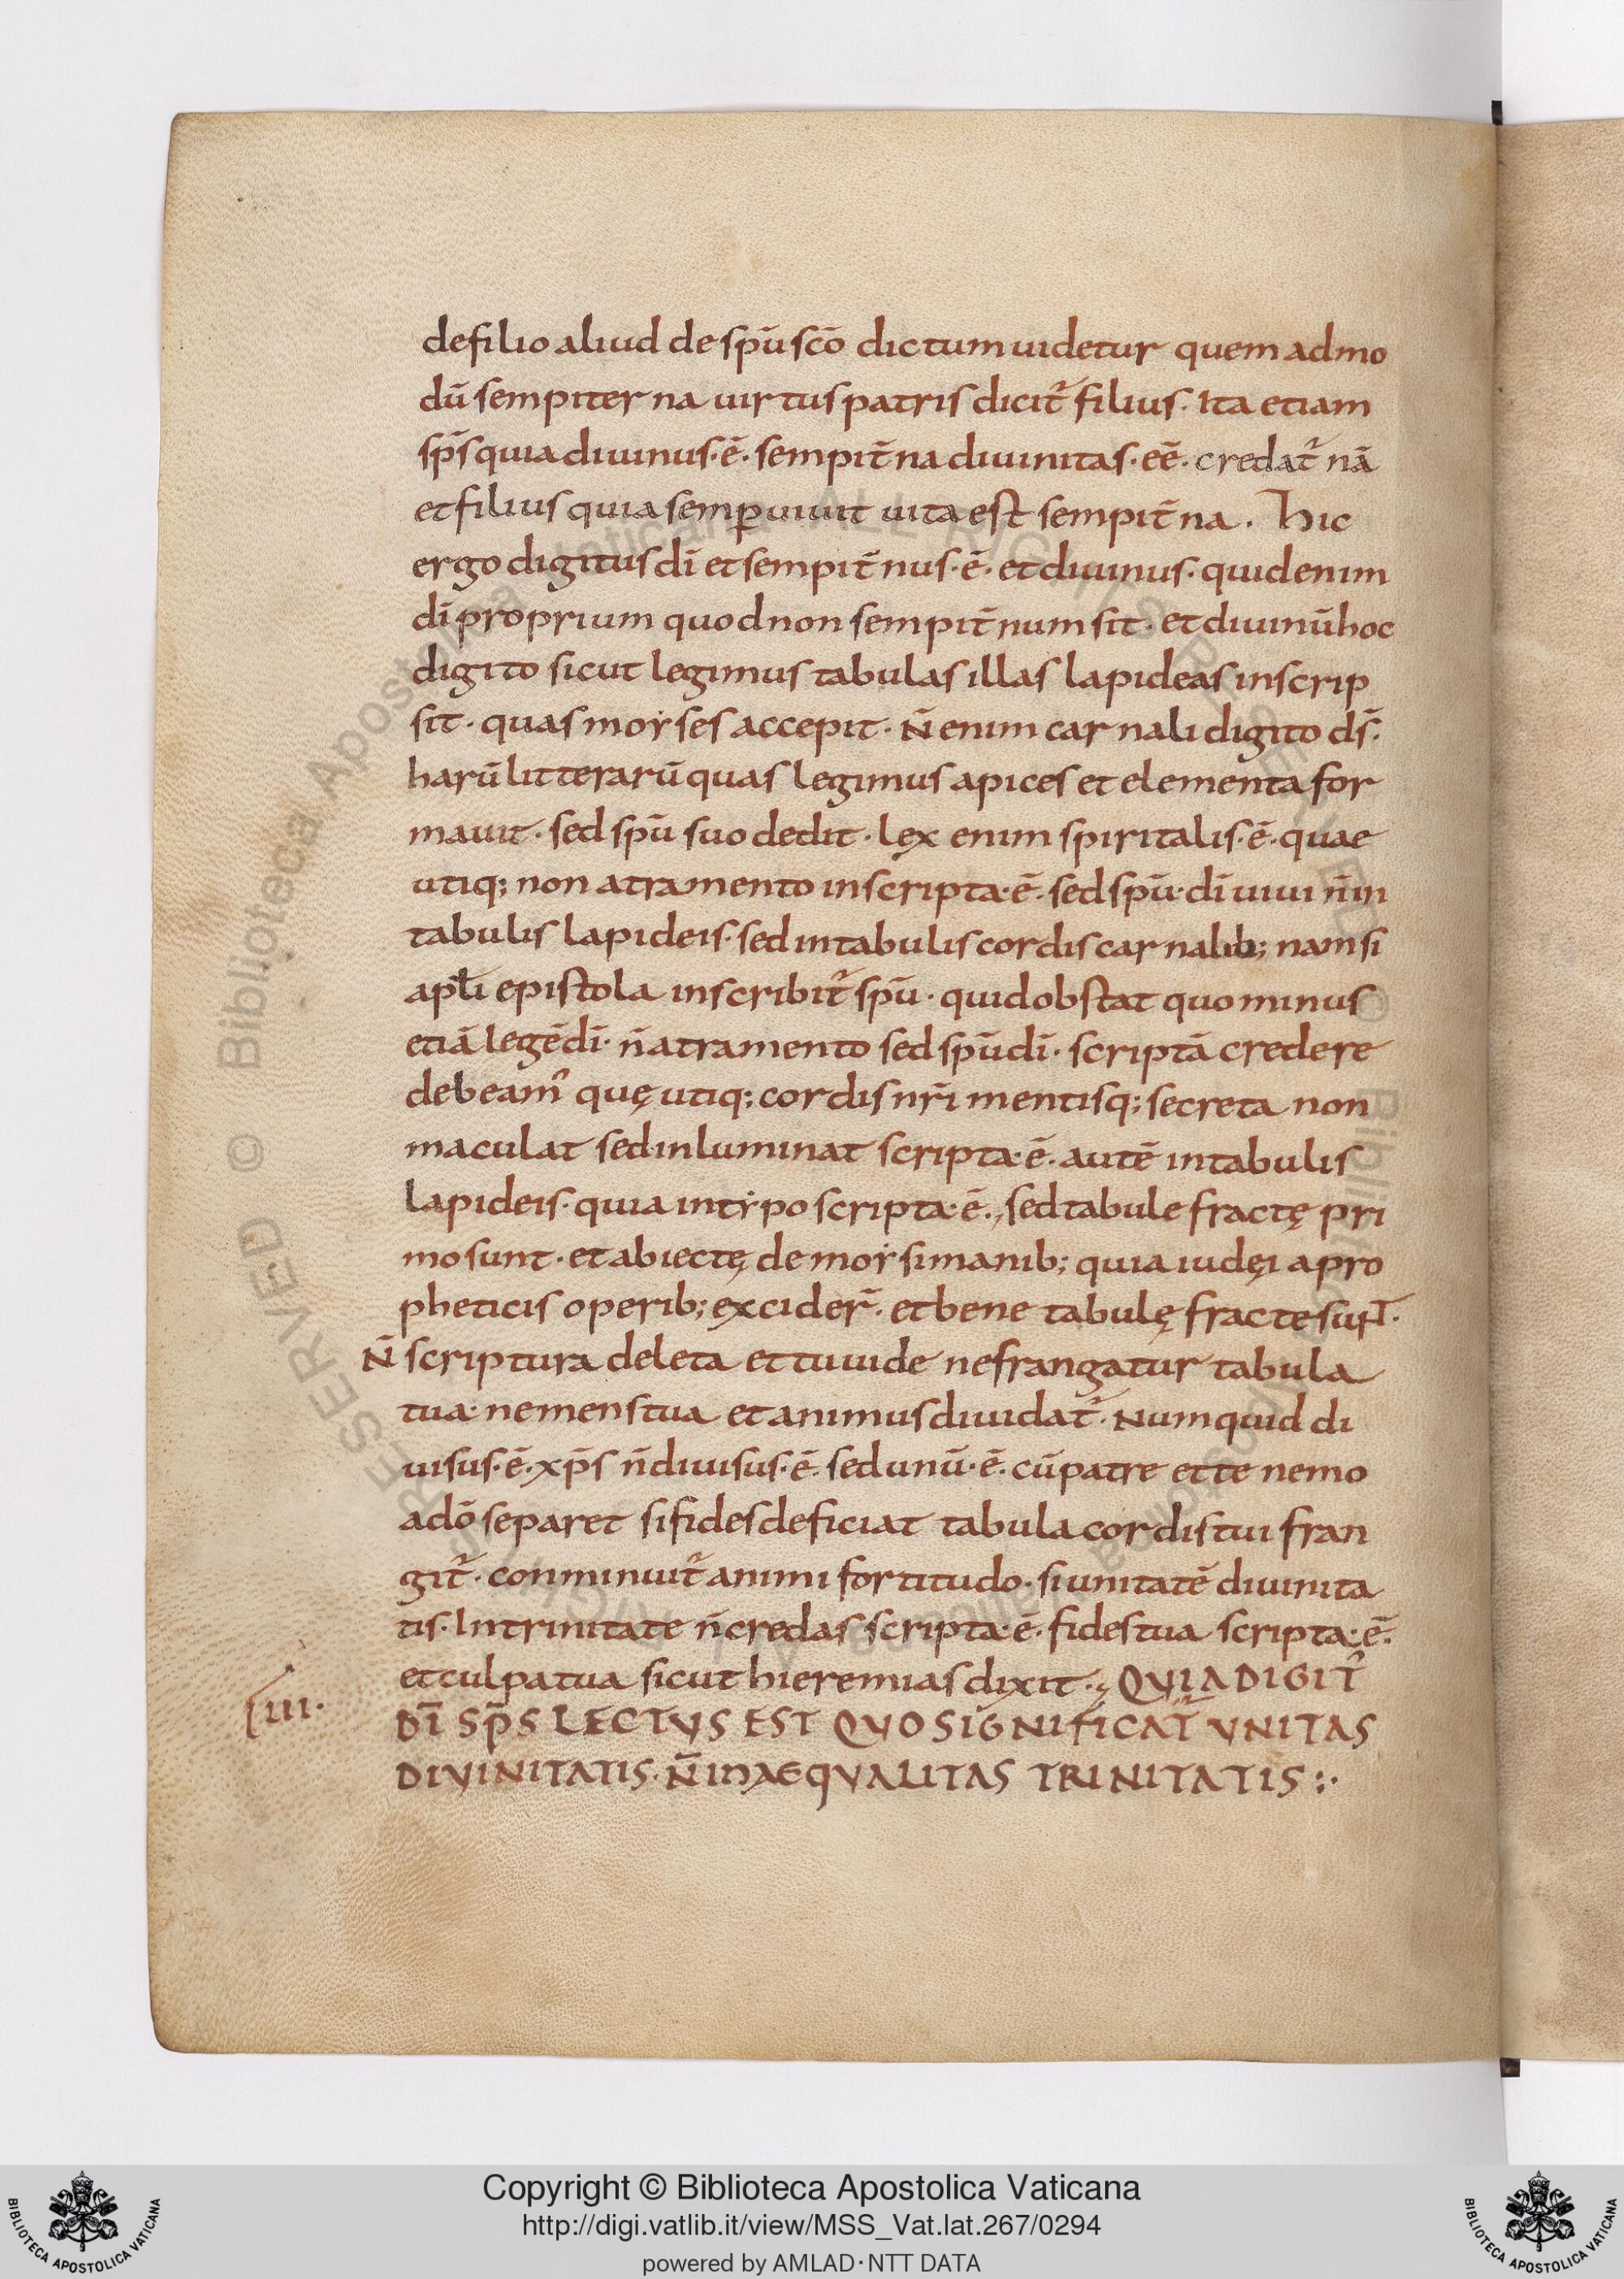 de filio aliud de sp̄u sc̄o dictum uidetur quem admo
dū sempiterna uirtus patris dicit̄ filius. Ita etiam
sp̄s quia diuinus·ē· sempit̄na diuinitas·eē· credat̄ nā
et filius quia semꝑ uiuit uita est sempit̄na. Hic
ergo digitus dī et sempit̄nus·ē· et diuinus· quid enim
dī proprium quod non sempit̄num sit· et diuinū hoc
digito sicut legimus tabulas illas lapideas inscrip
sit· quas moyses accepit· N̄ enim carnali digito ds̄·
harū litterarū quas legimus apices et elementa for
mauit· sed sp̄u suo dedit· lex enim spiritalis·ē· quae
utiq; non atramento inscripta·ē· sed sp̄u·dī uiui n̄ in
tabulis lapideis· sed in tabulis cordis carnalib; nam si
apl̄i epistola inscribit̄ sp̄u· quid obstat quominus
etiā legē dī· n̄ atramento sed sp̄u dī· scriptā credere
debeam᾽ quę utiq; cordis nr̄i mentisq; secreta non
maculat sed inluminat scripta·ē· autē in tabulis
lapideis· quia in typo scripta·ē·, sed tabule fractę pri
mo sunt· et abiectę de moysi manib; quia iudęi a pro
pheticis operib; excider̄· et bene tabulę fracte sun̄t·
N̄ scriptura deleta et tu uide ne frangatur tabula
tua· ne mens tua et animus diuidat̄· Numquid di
uisus·ē· xp̄s n̄ diuisus·ē· sed unū·ē· cū patre et te nemo
a dō separet si fides deficiat tabula cordis tui fran
git̄· conminuit̄ animi fortitudo· si unitatē diuinita
tis· In trinitate n̄ credas scripta·ē· fides tua scripta·ē·
et culpa tua sicut hieremias dixit·, QUIA DIGIT᾽
IIII·
DĪ SP̄S LECTUS EST QUO SIGNIFICAT᾽ UNITAS
DIUINITATIS· N̄ INAEQUALITAS TRINITATIS :·
© Biblioteca Apostolica Vaticana ALL RIGHTS RESERVED
Copyright © Biblioteca Apostolica Vaticana
http://digi.vatlib.it/view/MSS_Vat.lat.267/0294
powered by AMLAD·NTT DATA
BIBLIOTECA APOSTOLICA VATICANA
BIBLIOTECA APOSTOLICA VATICANA